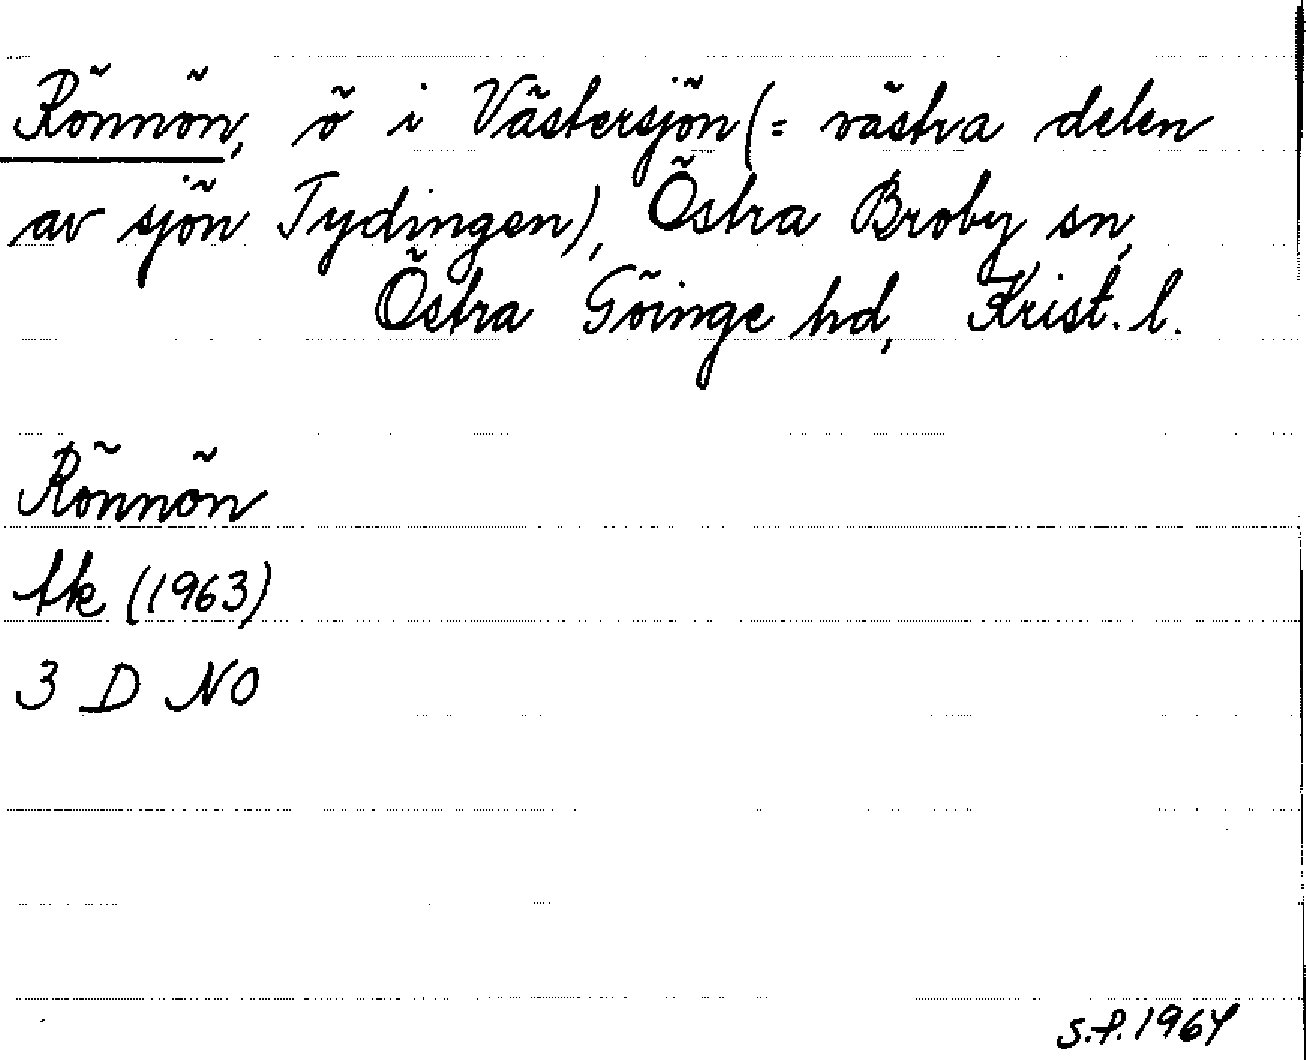 Rönnön, ö i Västersjön (= västra delen
av sjön Tydingen), Östra Broby sn,
Östra Göinge hd, Krist. l.
Rönnön
tk (1963)
3 D NO
S.F. 1964